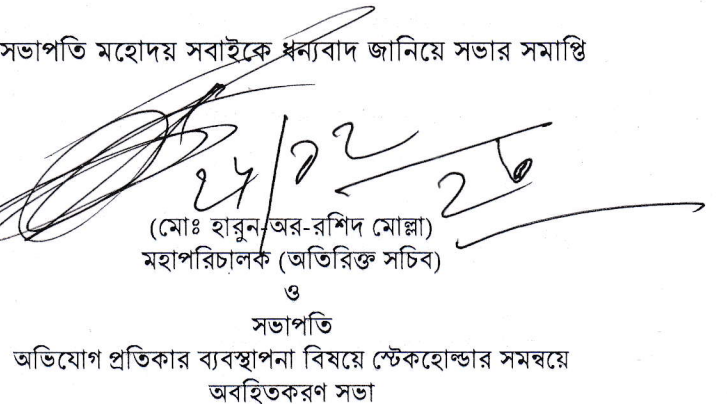 সভাপতি মহোদয় সবাইকে ধন্যবাদ জানিয়ে সভার সমাপ্তি
(মোঃ হারুন-অর-রশিদ মোল্লা)
মহাপরিচালক (অতিরিক্ত সচিব)
ও
সভাপতি
অভিযোগ প্রতিকার ব্যবস্থাপনা বিষয়ে স্টেকহোল্ডার সমন্বয়ে
অবহিতকরণ সভা